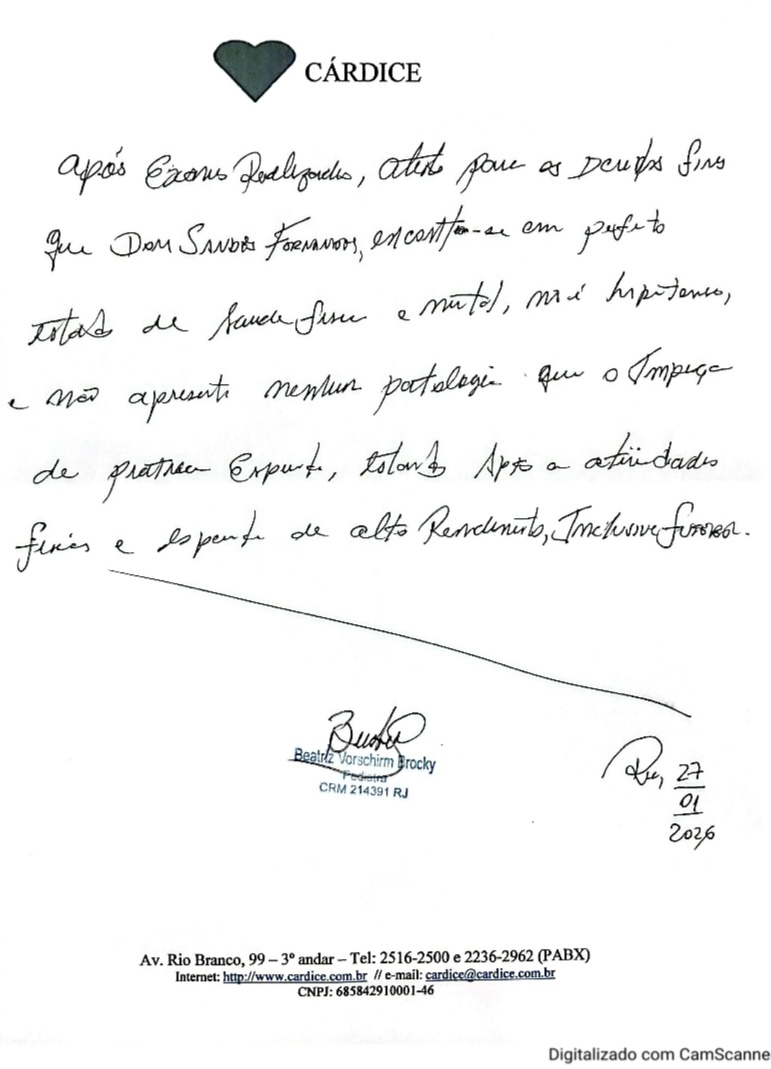 CÁRDICE
Após Exames Realizados, atesto para os Devidos fins
que
encontra-se em perfeito
estado de saúde física e mental, não é hipertenso,
e não apresenta nenhum patologia que o Impeça
de praticar Esporte, estando Apto a atividades
físicas e esporte de alto Rendimento, Inclusive futebol.
Beatriz Vorschirm Brocky
Pediatra
CRM 214391 RJ
Rio, 27
01
2026
Av. Rio Branco, 99 – 3º andar – Tel: 2516-2500 e 2236-2962 (PABX)
Internet: http://www.cardice.com.br // e-mail: cardice@cardice.com.br
CNPJ: 685842910001-46
Digitalizado com CamScanne